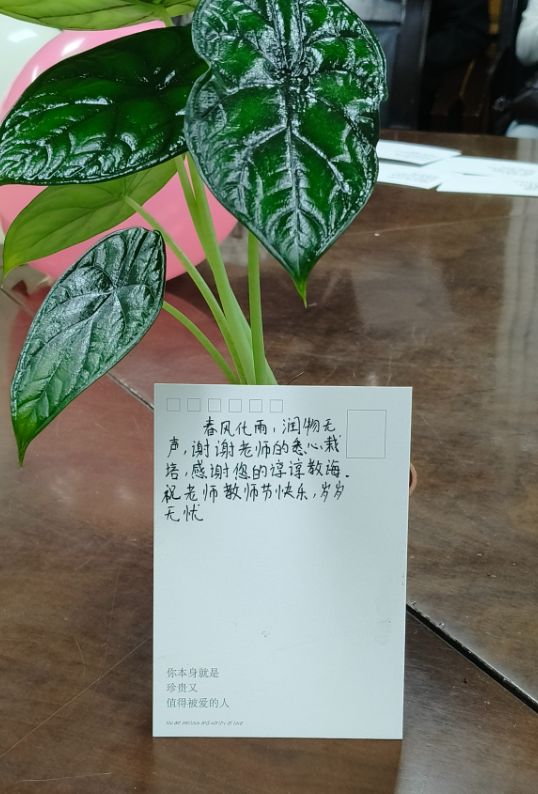 春风化雨,润物无
声,谢谢老师的悉心栽
培,感谢您的谆谆教诲.
祝老师教师节快乐,岁岁
无忧
你本身就是
珍贵又
值得被爱的人